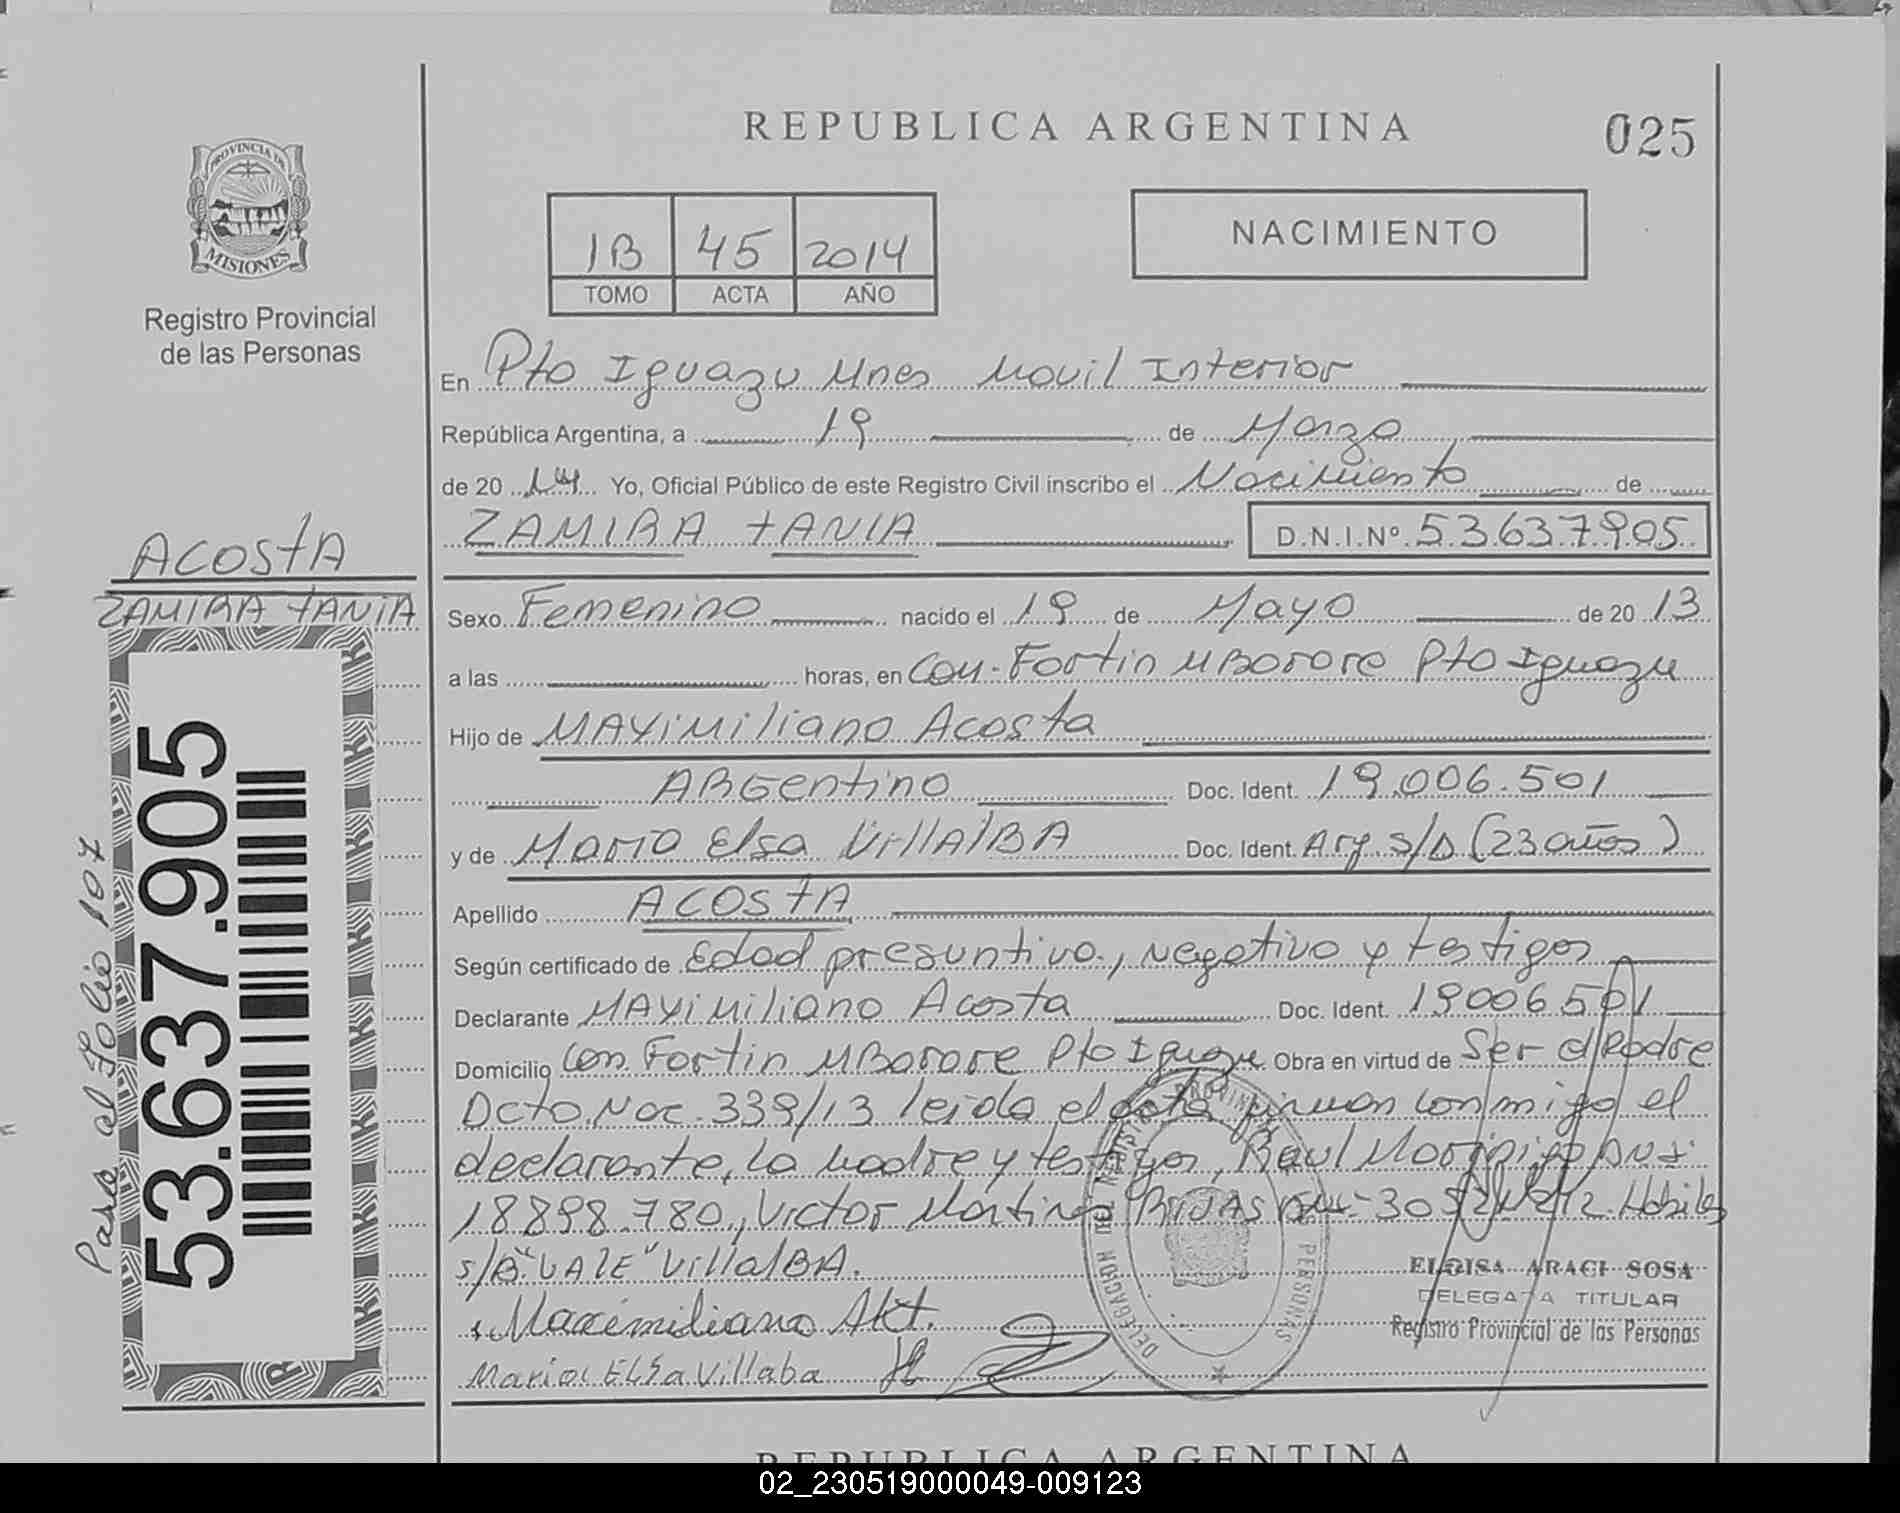 REPUBLICA ARGENTINA
025
PROVINCIA DE
MISIONES
Registro Provincial
de las Personas
1B 45 2014
TOMO ACTA AÑO
NACIMIENTO
En Pto Iguazu Mnes Movil Interior
República Argentina, a 19 de Marzo
de 20 14 Yo, Oficial Público de este Registro Civil inscribo el Nacimiento de
ZAMIRA TANIA D.N.I.Nº. 53637905
ACOSTA
ZAMIRA TANIA
Sexo Femenino nacido el 19 de Mayo de 20 13
a las horas, en Com. Fortin MBORORE Pto Iguazu
Hijo de MAXiMiliano Acosta
ARGentino Doc. Ident. 19.006.501
y de Maria Elsa VillAlBA Doc. Ident. Arg. S/D (23 años)
Apellido ACOSTA
Según certificado de Edad presuntiva, negativo y testigos
Declarante MAXiMiliano Acosta Doc. Ident. 19006501
Domicilio Com. Fortin MBORORE Pto Iguazu Obra en virtud de Ser el Padre
Dcto. Nac. 339/13 leida el acta firman conmigo el
declarante, la madre y testigos, Raul
18898.780, Victor Martinez
S/B "VALE" VillalBA.
Maximiliano
Maria ELSa Villaba
53.637.905
Pasa al Folio 107
DELEGACION DEL REGISTRO PROVINCIAL PERSONAS
ELOISA ARACI SOSA
DELEGADA TITULAR
Registro Provincial de las Personas
REPUBLICA ARGENTINA
02_230519000049-009123